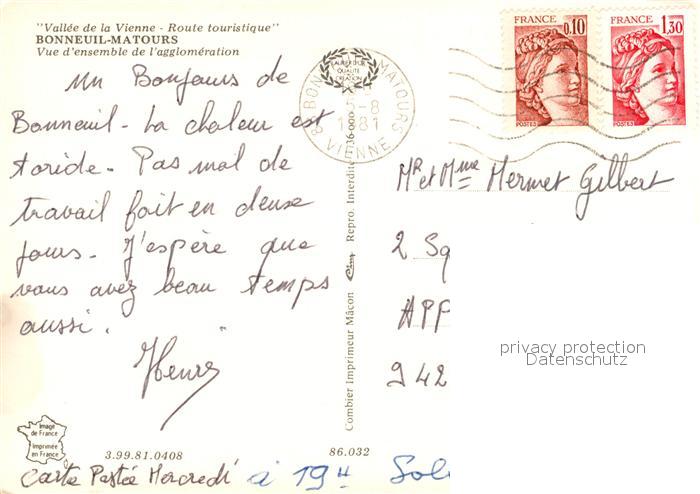 "Vallée de la Vienne - Route touristique"
BONNEUIL-MATOURS
Vue d'ensemble de l'agglomération
Un Bonjours de
Bonneuil - La chaleur est
toride - Pas mal de
travail fait en deux
jours - J'espère que
vous avez beau temps
aussi.
Henri
Image de France
Imprimée en France
3.99.81.0408
86.032
Carte Postée Mercredi à 19 H
Combier Imprimeur Mâcon Cim Repro. Interdite
QUALITÉ
CREATION
MATOURS
5-8
1981
VIENNE
FRANCE
0,10
POSTES
FRANCE
1,30
POSTES
Mr et Mme Mermet Gilbert
2 Sq
APP
942
privacy protection
Datenschutz